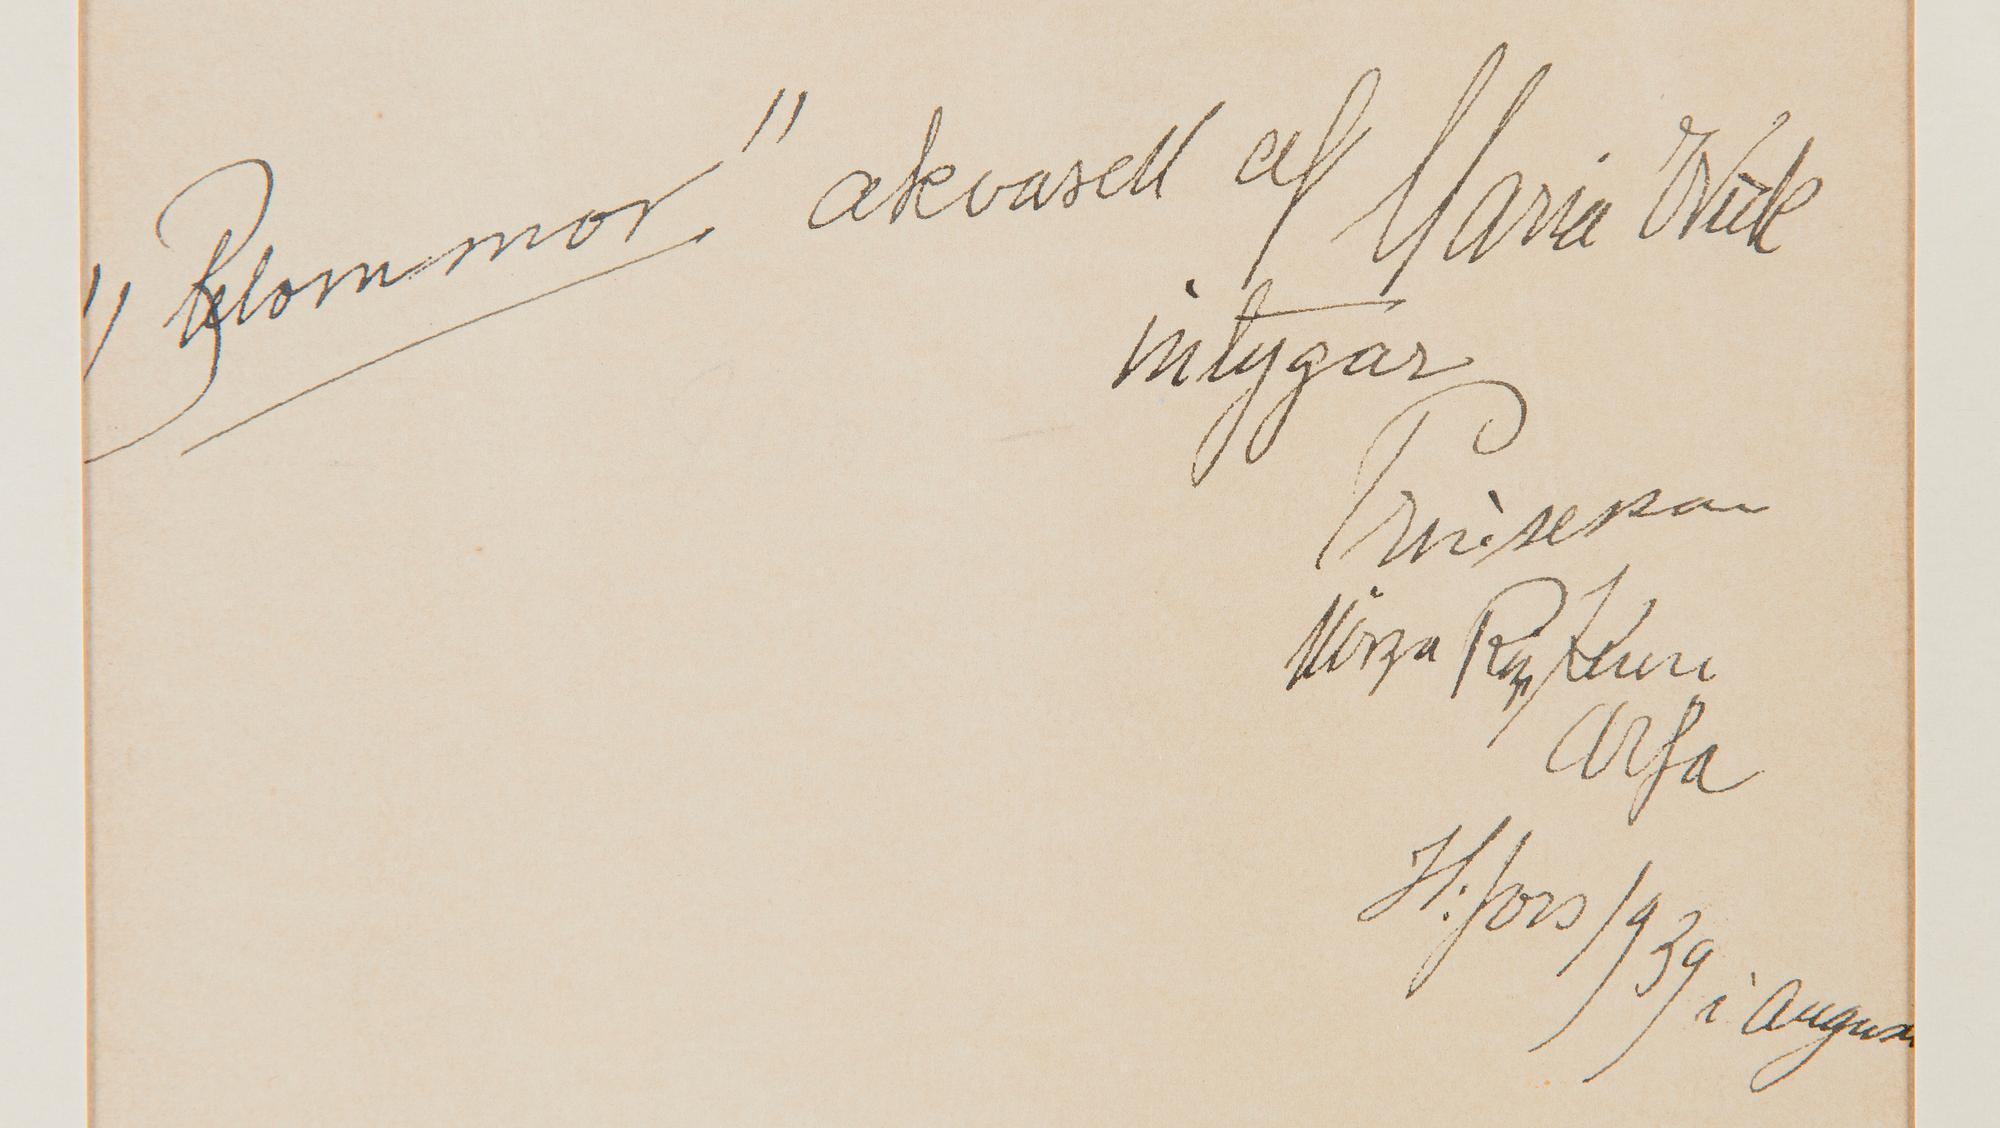 "Blommor" akvarell af Maria Wiik
intygar
Prinsessan
Mirza Riza Khan
Arfa
H:fors 1939 i Augus